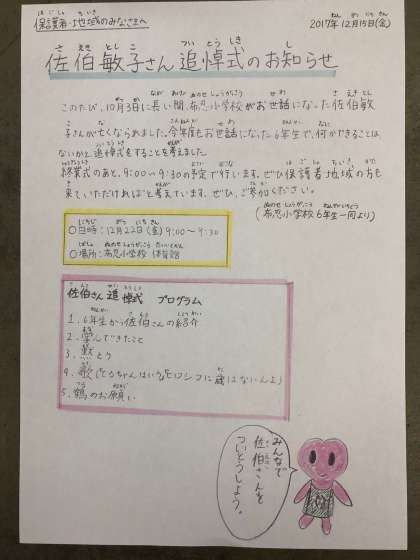 保護者・地域のみなさまへ
2017年12月15日(金)
佐伯敏子さん追悼式のお知らせ
このたび、10月3日に長い間、布忍小学校がお世話になった佐伯敏
子さんが亡くなられました。今年度もお世話になった6年生で、何かできることは
ないかと追悼式をすることを考えました。
終業式のあと、9:00〜9:30の予定で行います。ぜひ保護者・地域の方も
来ていただければと考えています。ぜひ、ご参加ください。
(布忍小学校6年生一同より)
○日時:12月22日(金)9:00〜9:30
○場所:布忍小学校 体育館
佐伯さん追悼式 プログラム
1.6年生から佐伯さんの紹介
2.学んできたこと
3.黙とう
4.歌(とうちゃんはいうヒロシマに歳はないんよ)
5.鶴のお願い
みんなで
佐伯さんを
ついとうしよう。